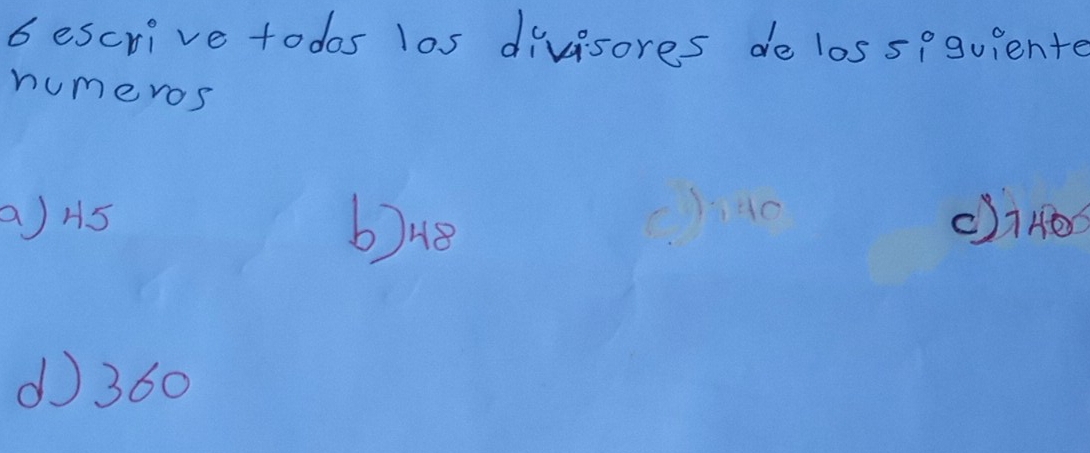 6 escrive todos los divisores de los siguiente
numeros
a) 45 b) 48 c) 140 c)
d) 360